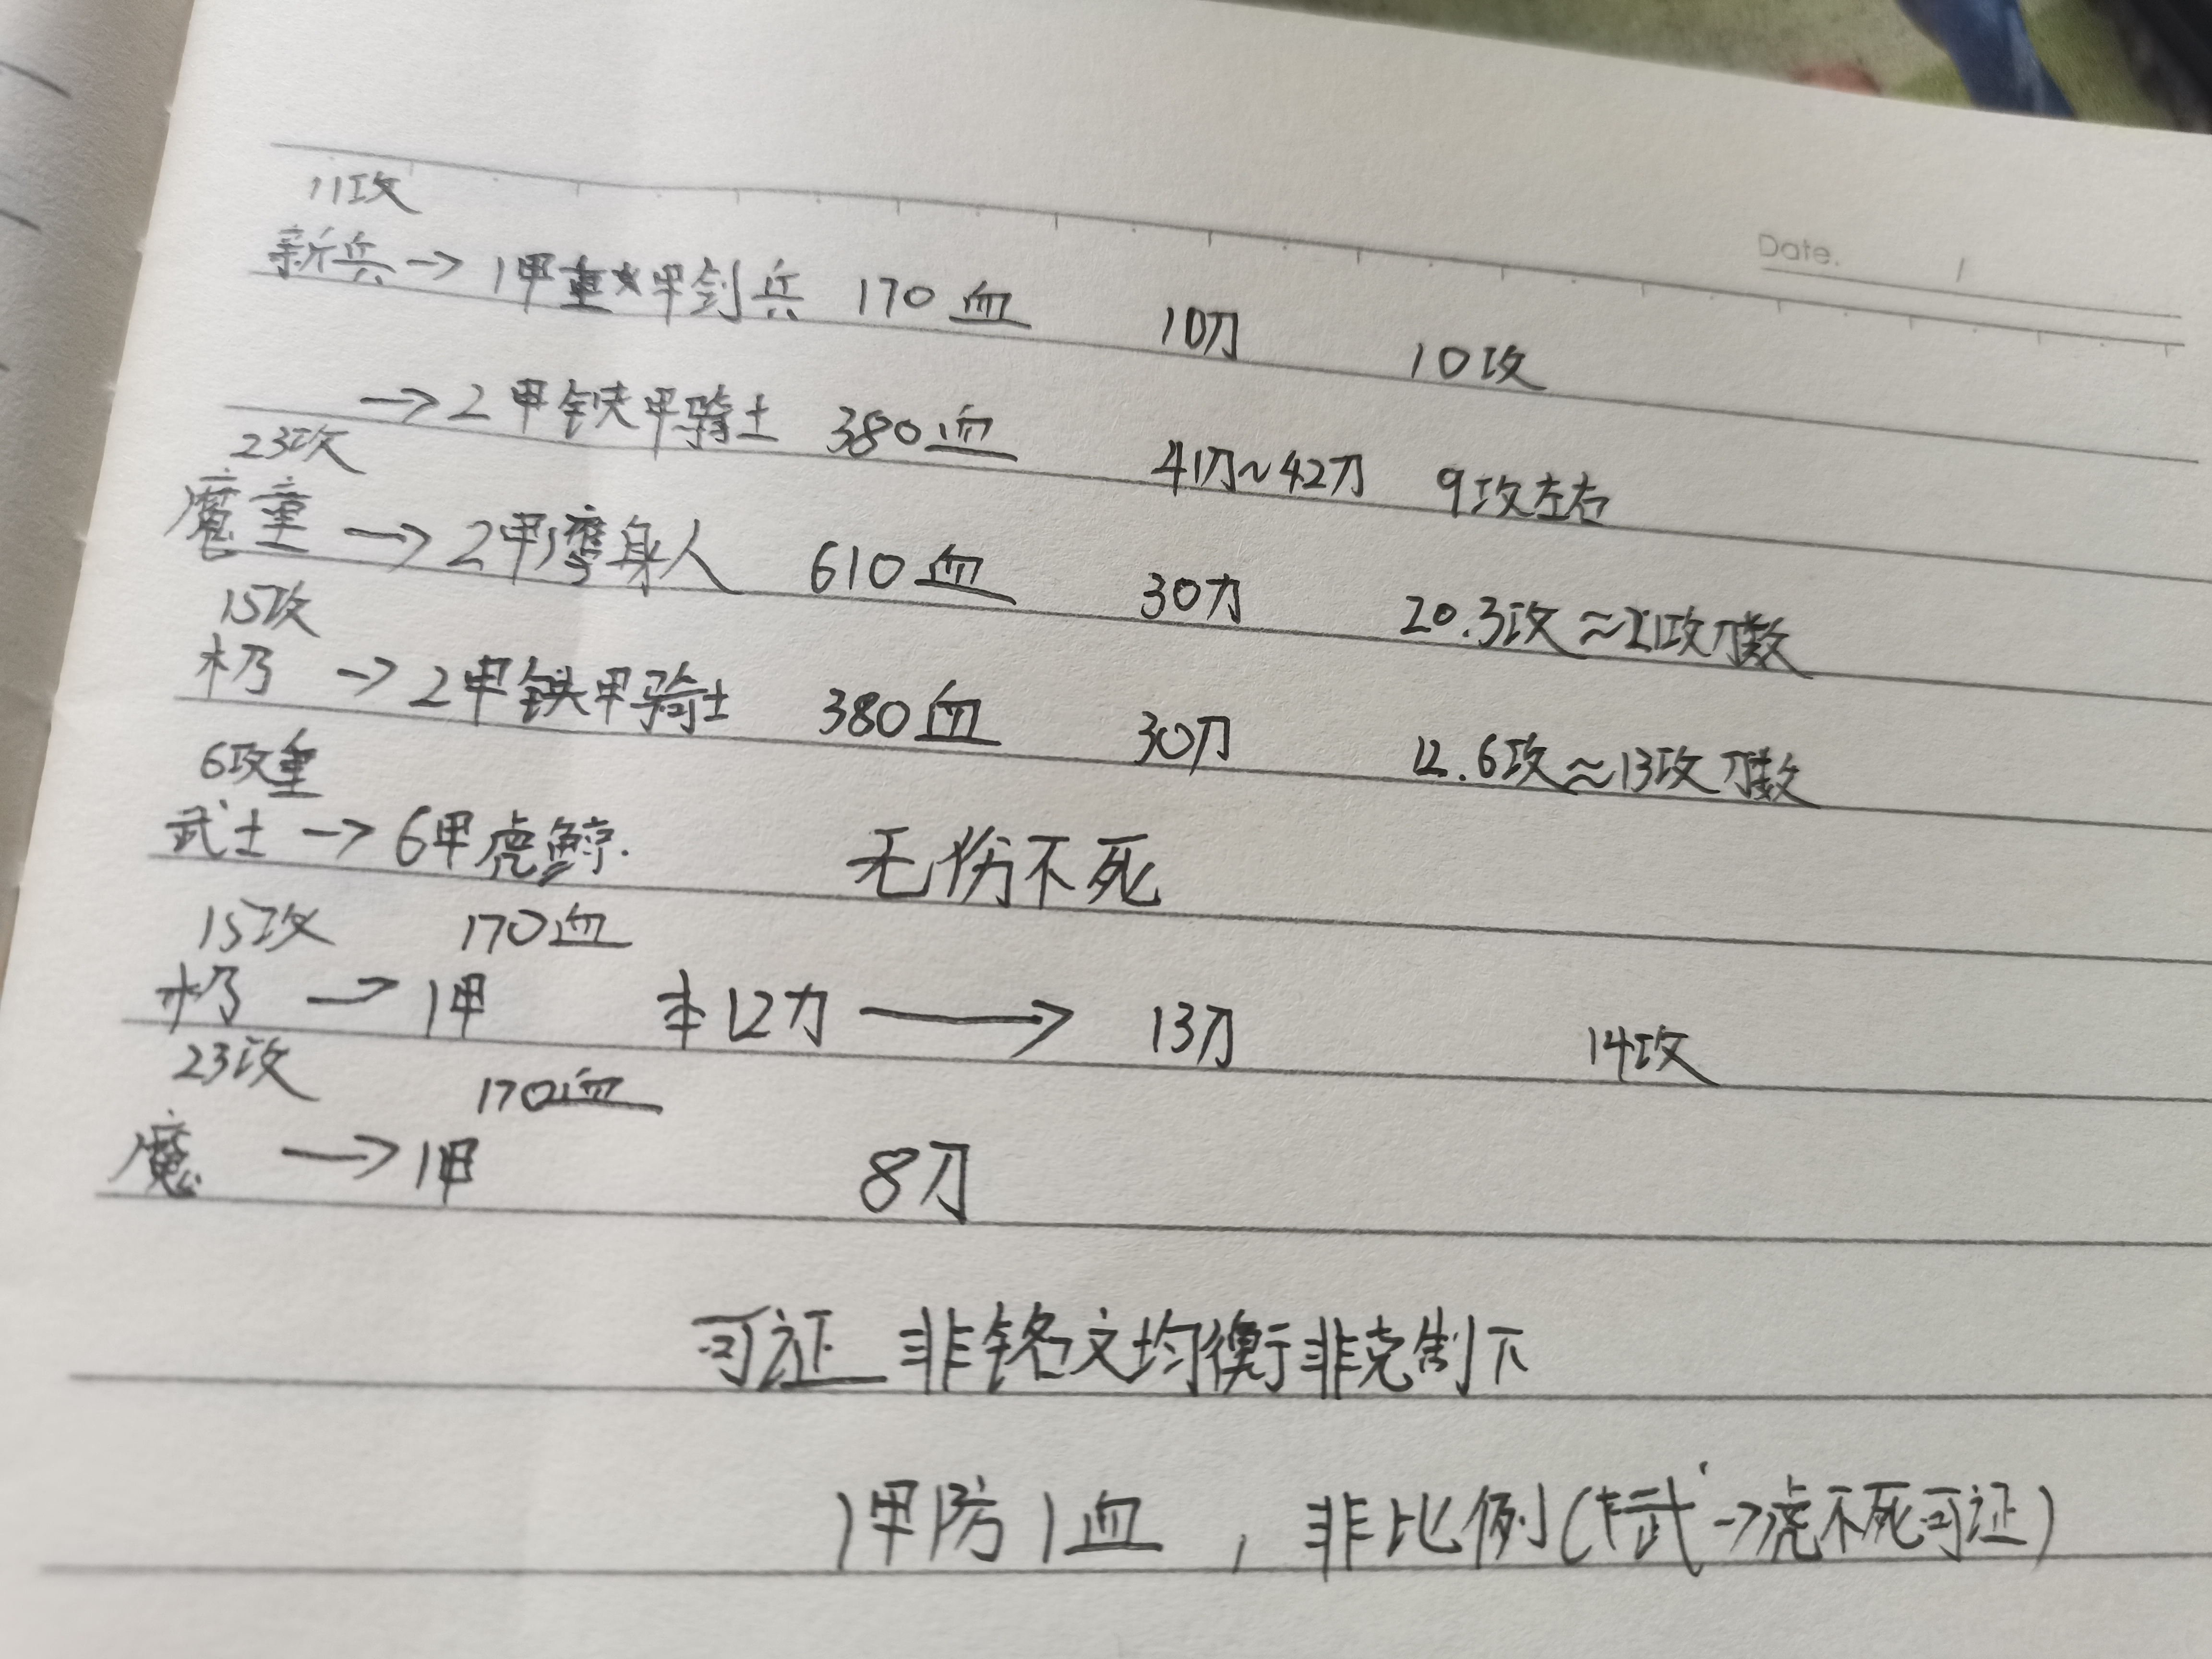 Date.
11攻
新兵→1甲重甲剑兵 170血 10刀 10攻
→2甲铁甲骑士 380血 41刀~42刀 9攻左右
23攻
魔童→2甲鹰身人 610血 30刀 20.3攻≈21攻刀数
15攻
→2甲铁甲骑士 380血 30刀 12.6攻≈13攻刀数
6攻重
武士→6甲虎鲸. 无伤不死
15攻 170血
→1甲 12刀→13刀 14攻
23攻 170血
魔→1甲 8刀
可证 非铭文均衡非克制下
1甲防1血,非比例(武→虎不死可证)